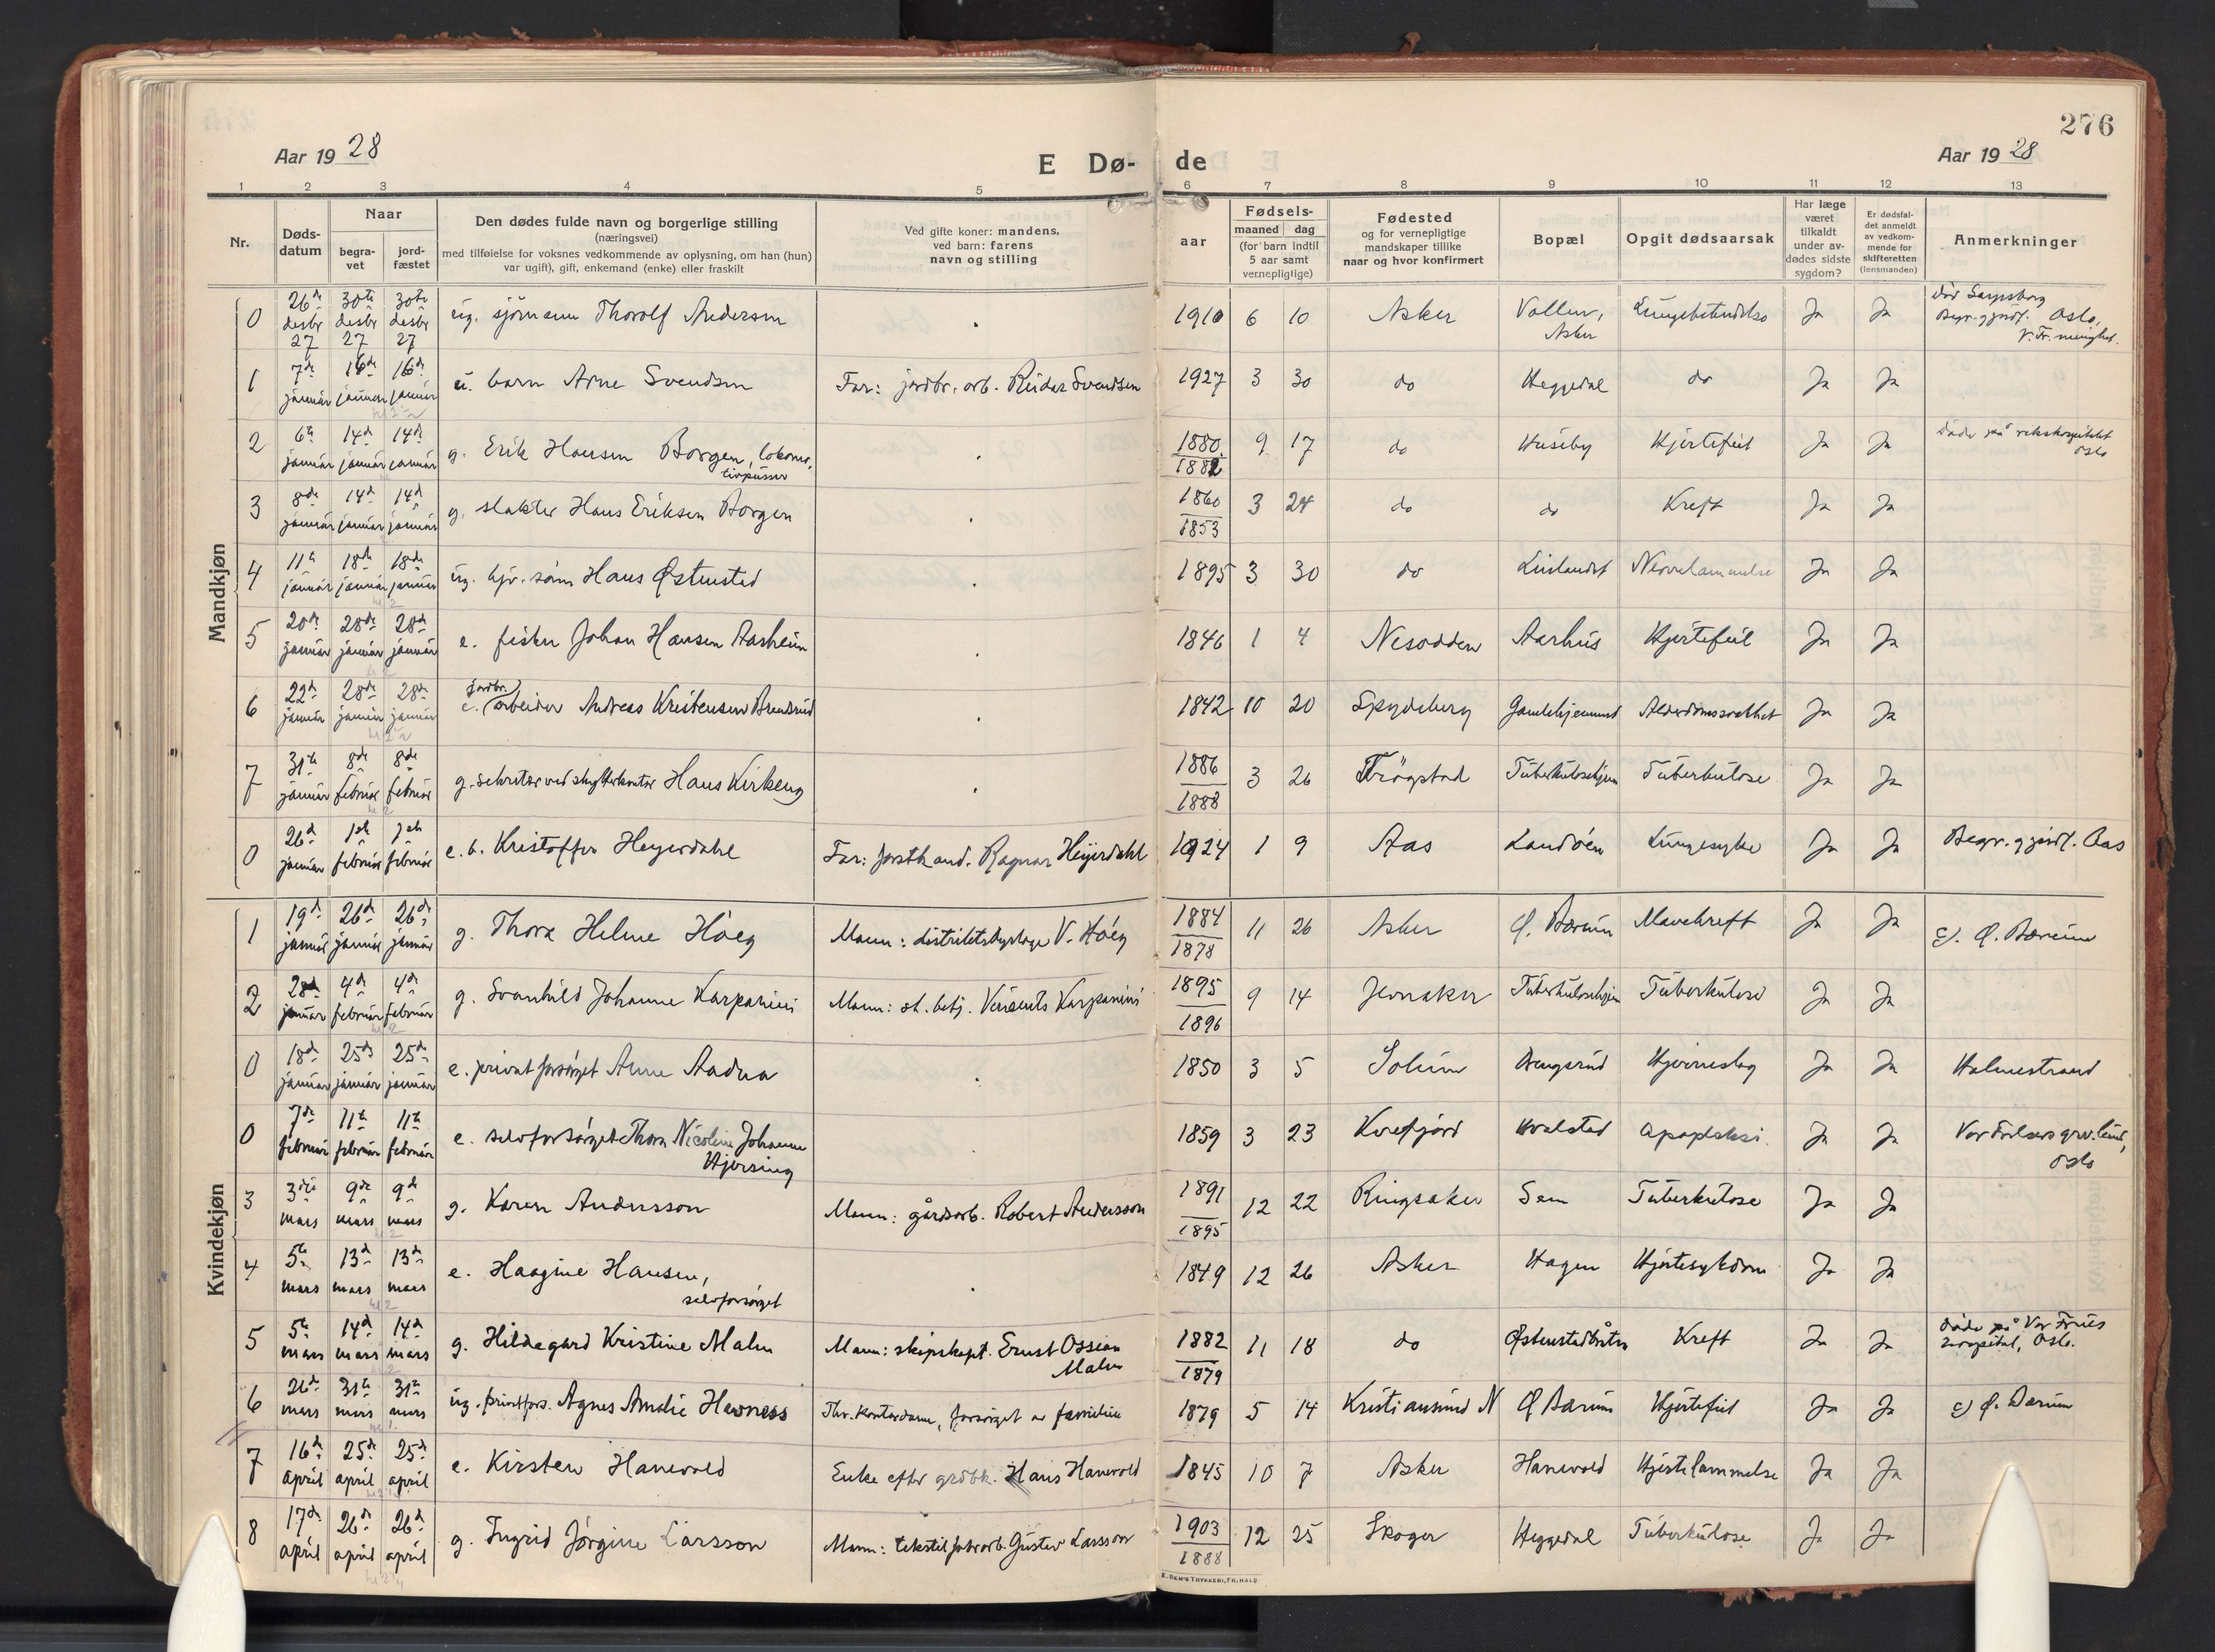 276
Aar 19 28
E Dø-
de
Aar 19 28
1 2 3 4 5 6 7 8 9 10 11 12 13
Nr.
Døds-
datum
Naar
begra-
vet
jord-
fæstet
Den dødes fulde navn og borgerlige stilling
(næringsvei)
med tilføielse for voksnes vedkommende av oplysning, om han (hun)
var ugift), gift, enkemand (enke) eller fraskilt
Ved gifte koner: mandens,
ved barn: farens
navn og stilling
aar
Fødsels-
maaned dag
(for barn indtil
5 aar samt
vernepligtige)
Fødested
og for vernepligtige
mandskaper tillike
naar og hvor konfirmert
Bopæl
Opgit dødsaarsak
Har læge
været
tilkaldt
under av-
dødes sidste
sygdom?
Er dødsfal-
det anmeldt
av vedkom-
mende for
skifteretten
(lensmanden)
Anmerkninger
Mandkjøn
0 26de desbr 27 30te desbr 27 30te desbr 27 ug. sjømann Thorolf Andersen 1910 6 10 Asker Vollen, Asker Lungebetendelse Ja Ja Død Sarpsborg Begr. og jordf. Oslo, V. Fr. menighet.
1 7de januar 16de januar 16de januar u. barn Arne Svendsen Far: jordbr. arb. Reidar Svendsen 1927 3 30 do Heggedal do Ja Ja
2 6te januar 14de januar 14de januar g. Erik Hansen Borgen, lokomotivpusser 1880 1882 9 17 do Huseby Hjertefeil Ja Ja Døde på rikshospitalet Oslo
3 8de januar 14de januar 14de januar g. slakter Hans Eriksen Borgen 1860 1853 3 24 do do Kreft Ja Ja
4 11te januar 18de januar 18de januar ug. hjv. sønn Hans Østensted 1895 3 30 do Nervelammelse Ja Ja
5 20de januar 28de januar 28de januar e. fisker Johan Hansen Aasheim 1846 1 4 Nesodden Aarhus Hjertefeil Ja Ja
6 22de januar 28de januar 28de januar e. jordbr. arbeider Andreas Kristensen Brendsrud 1842 10 20 Spydeberg Gamlehjemmet Alderdomssvakhet Ja Ja
7 31te januar 8de februar 8de februar g. sekretær ved skytterkontor Hans Kirkeng 1886 1888 3 26 Trøgstad Tuberkulosehjem Tuberkulose Ja Ja
0 26de januar 1ste februar 1ste februar e. b. Kristoffer Heyerdahl Far: forstkand. Ragnar Heyerdahl 1924 1 9 Aas Landøen Lungesyke Ja Ja Begr. og jordf. Aas
Kvindekjøn
1 19de januar 26de januar 26de januar g. Thora Helene Høeg Mann: distriktslege V. Høeg 1884 1878 11 26 Asker Ø. Bærum Mavekreft Ja Ja Ø. Bærum
2 28de januar 4de februar 4de februar g. Svanhild Johanne Karpanini Mann: st. betj. Karpanini 1895 1896 9 14 Jevnaker Tuberkulosehjem Tuberkulose Ja Ja
0 18de januar 25de januar 25de januar e. privat forsørget Anne Aadna 1850 3 5 Solum Bergsrud Hjerneslag Ja Ja Holmestrand
0 7de februar 11te februar 11te februar e. selvforsørget Thora Nicoline Johanne Hjorsing 1859 3 23 Kvæfjord Hvalstad apopleksi Ja Ja Vor Frelsers grv.lund, Oslo
3 3die mars 9de mars 9de mars g. Karen Andersson Mann: gårdsarb. Robert Andersson 1891 1895 12 22 Ringsaker Sem Tuberkulose Ja Ja
4 5te mars 13de mars 13de mars e. Haagine Hansen, selvforsørget 1849 12 26 Asker Hagen Hjertesykdom Ja Ja
5 5te mars 14de mars 14de mars g. Hildegard Kristine Malm Mann: skipskapt. Ernst Ossian Malm 1882 1879 11 18 do Østenstadbråten Kreft Ja Ja Døde på Vor Frues hospital, Oslo.
6 26de mars 31te mars 31te mars ug. privtfors. Agnes Amalie Havness Thv. kontordame, forsørget av familien 1879 5 14 Kristiansund N Ø Bærum Hjertefeil Ja Ja Ø. Bærum
7 16de april 25de april 25de april e. Kirsten Hanevold Enke efter grdbk. Hans Hanevold 1845 10 7 Asker Hanevold Hjertelammelse Ja Ja
8 17de april 26de april 26de april g. Ingrid Jørgine Larsson Mann: tekstilfabrarb. Gustav Larsson 1903 1888 12 25 Skoger Heggedal Tuberkulose Ja Ja
E. SEM'S TRYKKERI, FR.HALD